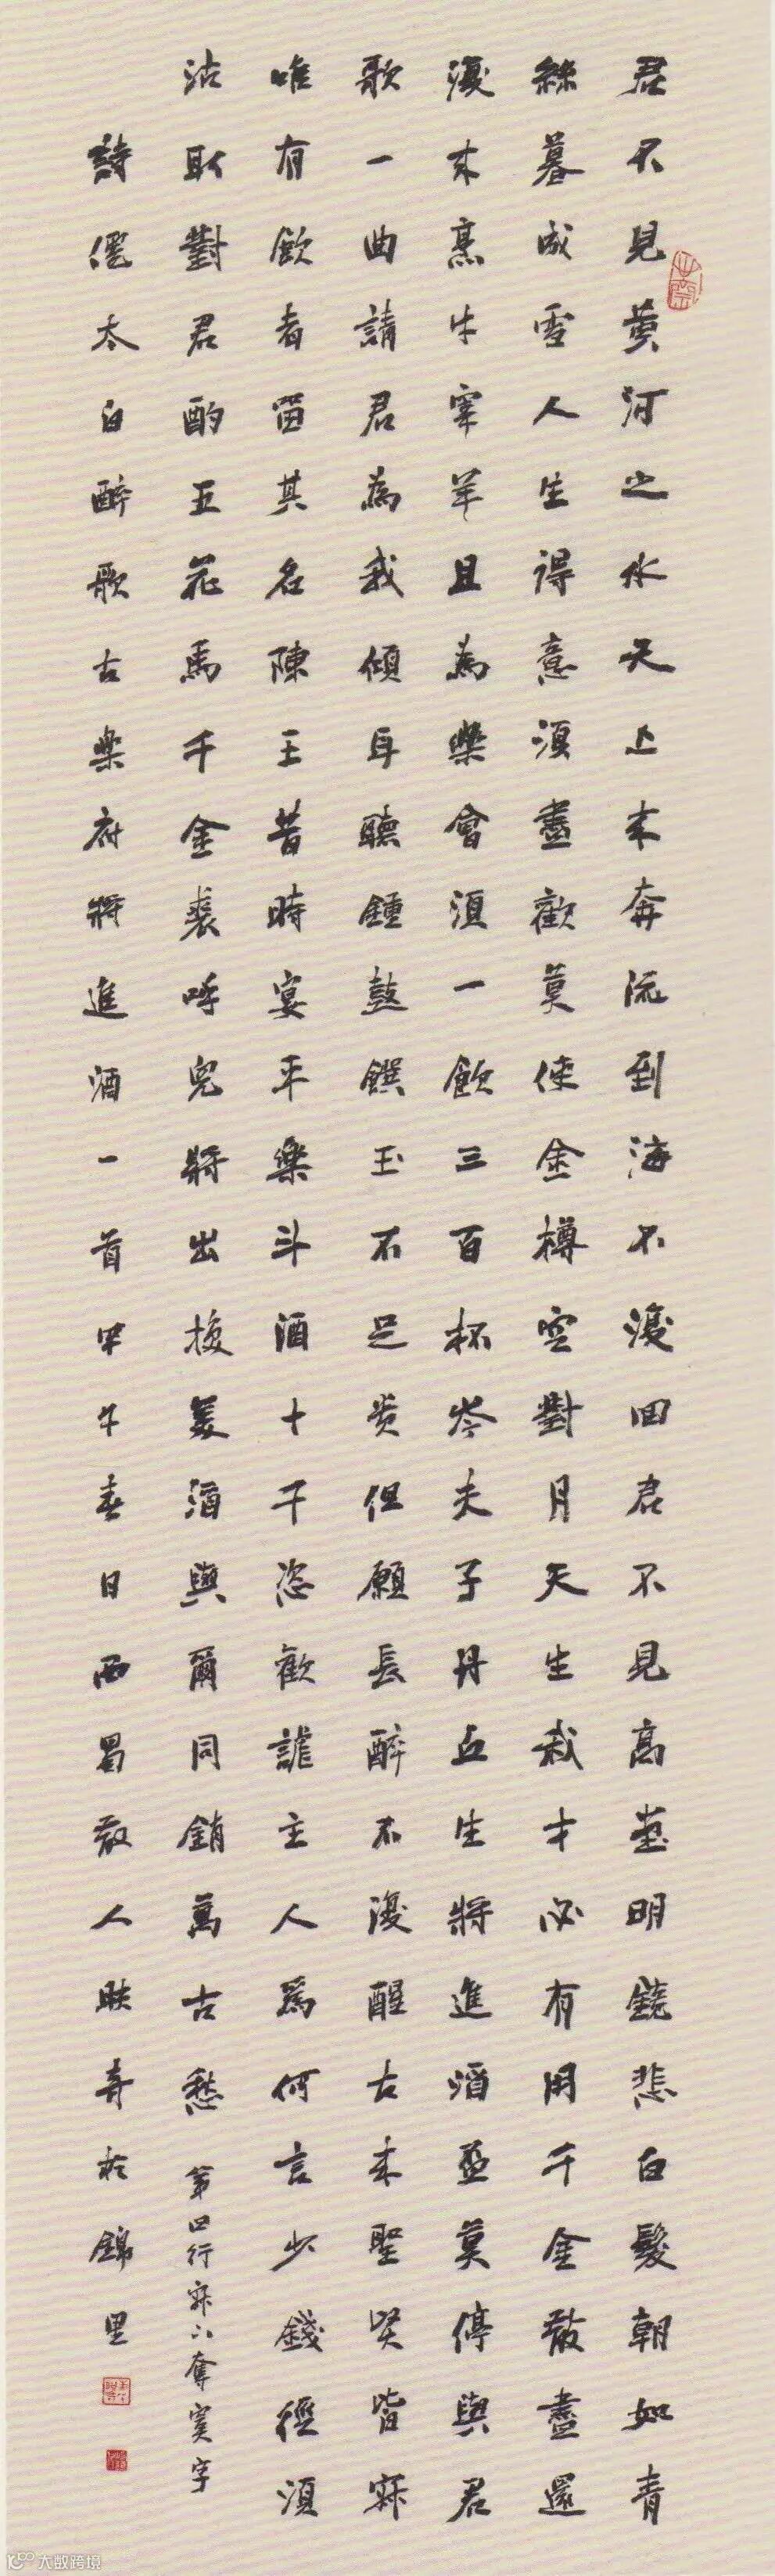 君不見黃河之水天上來奔流到海不復回君不見高堂明鏡悲白髮朝如青
絲暮成雪人生得意須盡歡莫使金樽空對月天生我才必有用千金散盡還
復來烹牛宰羊且為樂會須一飲三百杯岑夫子丹丘生將進酒盃莫停與君
歌一曲請君為我傾耳聽鍾鼓饌玉不足貴但願長醉不復醒古來聖賢皆寂
唯有飲者留其名陳王昔時宴平樂斗酒十千恣歡謔主人爲何言少錢徑須
沽取對君酌五花馬千金裘呼兒將出換美酒與爾同銷萬古愁
第四行寂下奪寞字
詩僊太白醉歌古樂府將進酒一首甲午春日西蜀散人奇於錦里
大数跨境